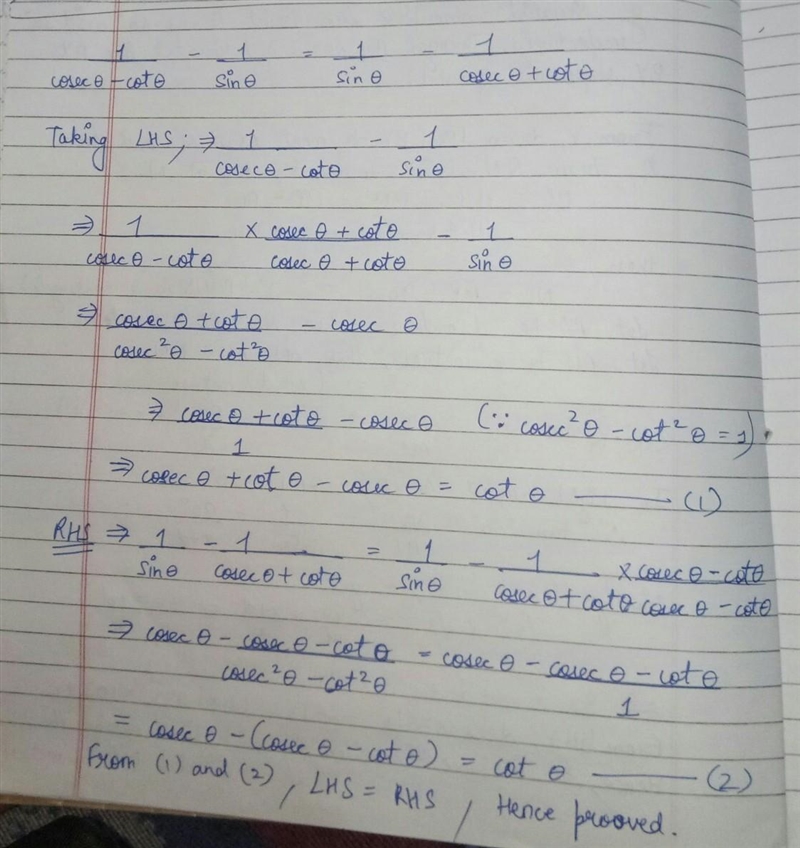 1/(cosec θ - cot θ) - 1/sin θ = 1/sin θ - 1/(cosec θ + cot θ)
Taking LHS; ⇒ 1/(cosec θ - cot θ) - 1/sin θ
⇒ 1/(cosec θ - cot θ) × (cosec θ + cot θ)/(cosec θ + cot θ) - 1/sin θ
⇒ (cosec θ + cot θ)/(cosec²θ - cot²θ) - cosec θ
⇒ (cosec θ + cot θ)/1 - cosec θ (∵ cosec²θ - cot²θ = 1)
⇒ cosec θ + cot θ - cosec θ = cot θ —— (1)
RHS ⇒ 1/sin θ - 1/(cosec θ + cot θ) = 1/sin θ - 1/(cosec θ + cot θ) × (cosec θ - cot θ)/(cosec θ - cot θ)
⇒ cosec θ - (cosec θ - cot θ)/(cosec²θ - cot²θ) = cosec θ - (cosec θ - cot θ)/1
= cosec θ - (cosec θ - cot θ) = cot θ —— (2)
From (1) and (2), LHS = RHS, Hence prooved.